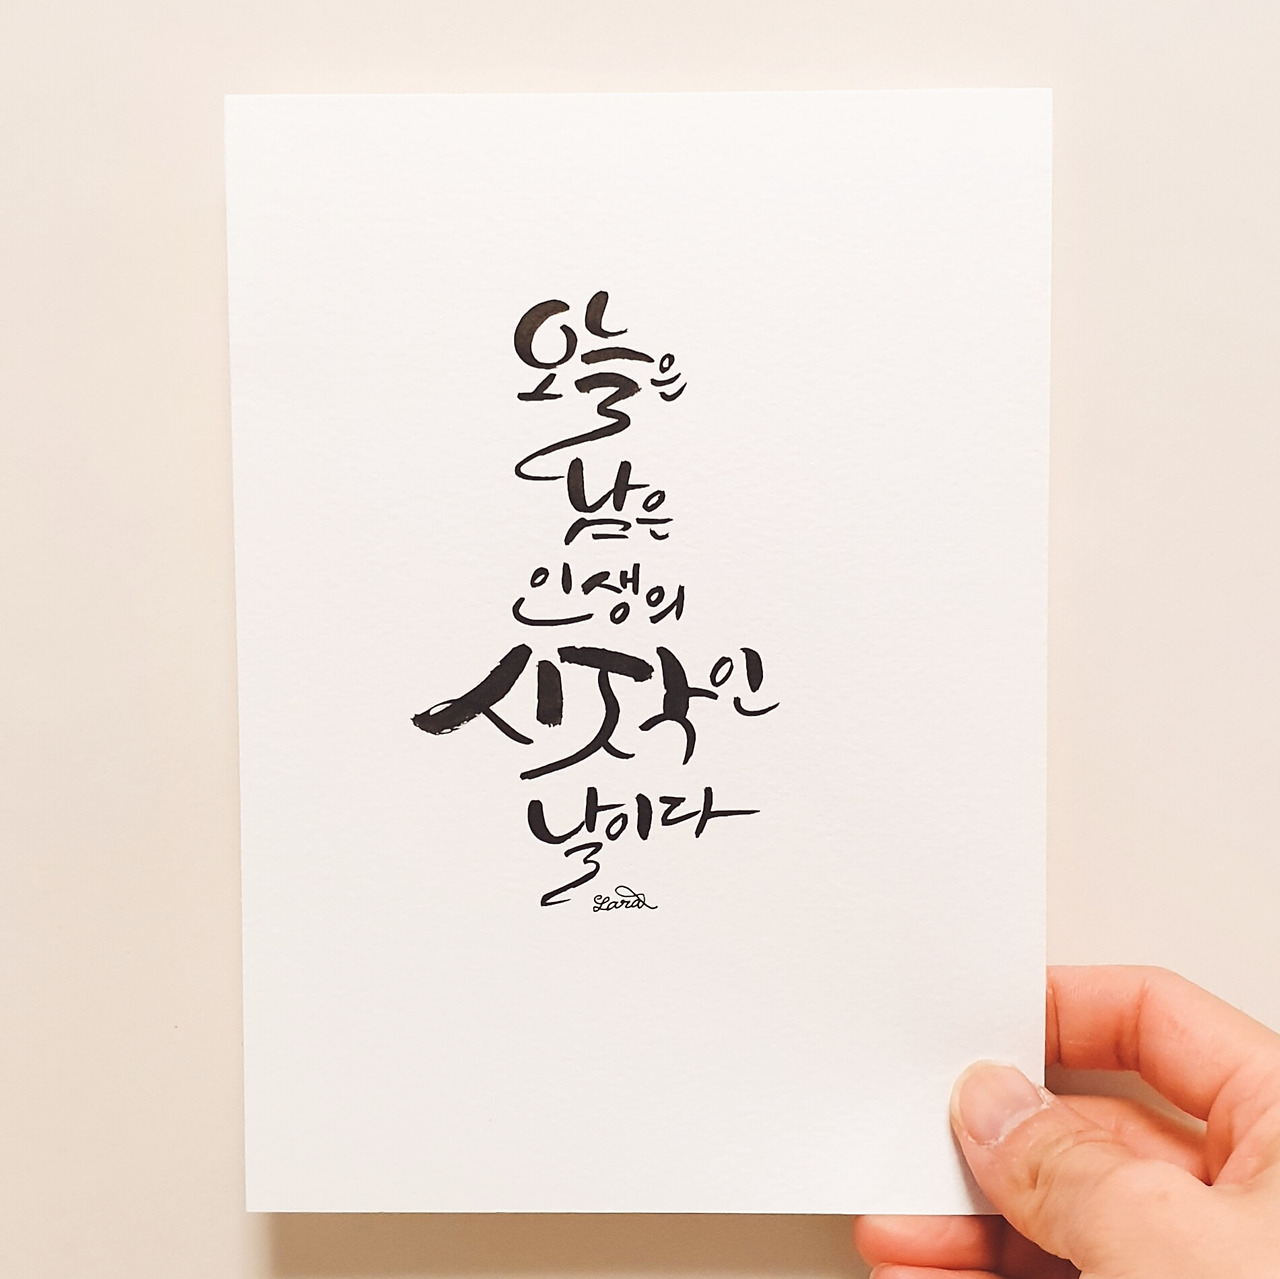 오늘은
남은
인생의
시작인
날이다
Lara